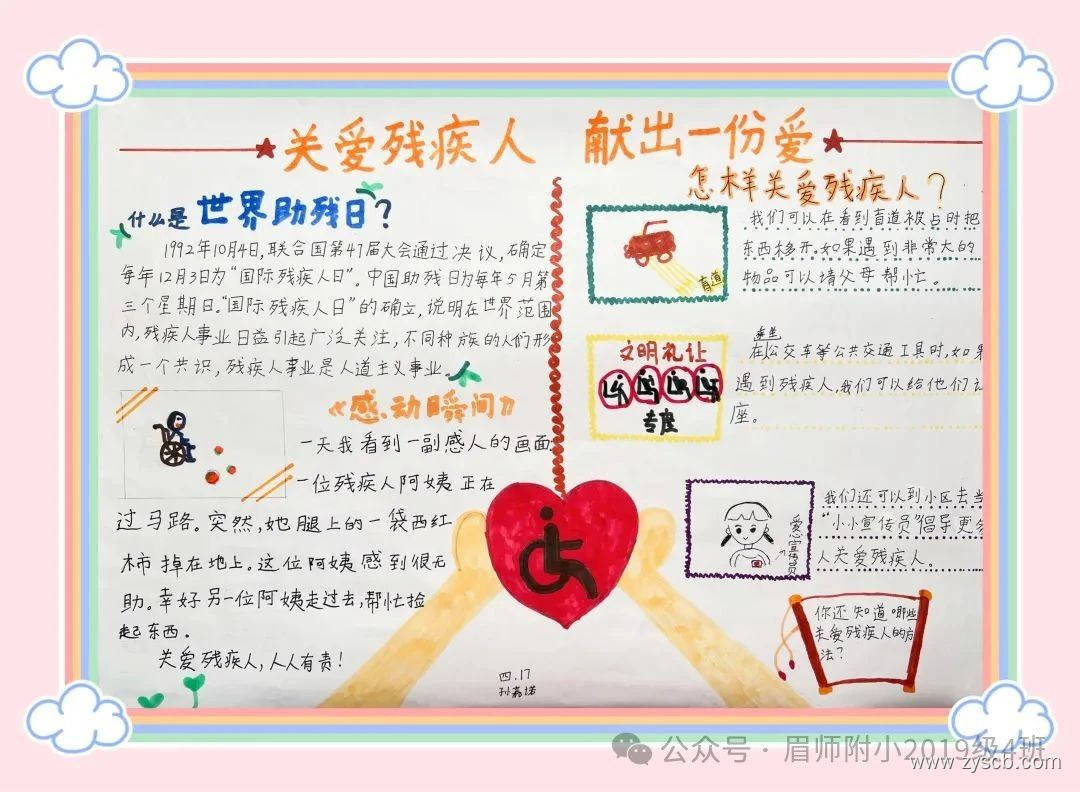 关爱残疾人 献出一份爱
什么是世界助残日？
1992年10月4日，联合国第47届大会通过决议，确定
每年12月3日为“国际残疾人日”。中国助残日为每年5月第
三个星期日。“国际残疾人日”的确立，说明在世界范围
内，残疾人事业日益引起广泛关注，不同种族的人们形
成一个共识，残疾人事业是人道主义事业。
《感动瞬间》
一天我看到一副感人的画面
一位残疾人阿姨正在
过马路。突然，她腿上的一袋西红
柿掉在地上。这位阿姨感到很无
助。幸好另一位阿姨走过去，帮忙捡
起东西。
关爱残疾人，人人有责！
怎样关爱残疾人？
盲道
我们可以在看到盲道被占时把
东西移开。如果遇到非常大的
物品可以请父母帮忙。
文明礼让
专座
乘坐
在公交车等公共交通工具时，如果
遇到残疾人，我们可以给他们让
座。
爱心宣传员
我们还可以到小区去当
“小小宣传员”倡导更多
人关爱残疾人。
你还知道哪些
关爱残疾人的方
法？
四.17
孙
公众号·眉师附小2019级4班
www.zyscb.com